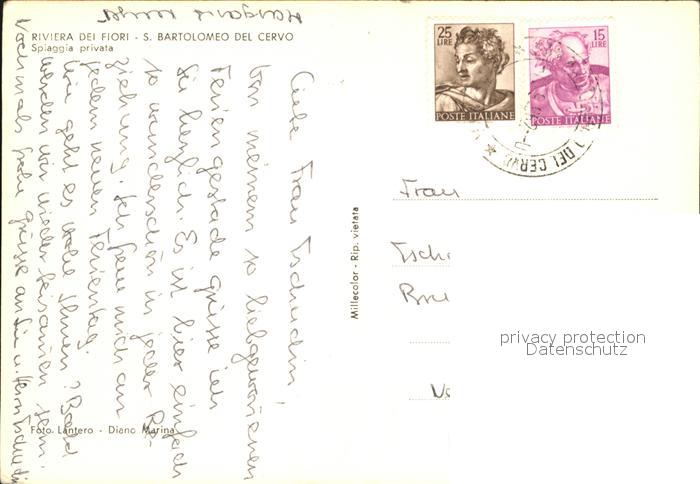 RIVIERA DEI FIORI - S. BARTOLOMEO DEL CERVO
Spiaggia privata
Liebe Frau Tschudin!
Von meinem so liebgewonnenen
Feriengestade grüsse ich
Sie herzlich. Es ist hier einfach
so wunderschön in jeder Be-
ziehung. Ich freue mich an
jedem neuen Ferientag.
Wie geht es wohl Ihnen? Bald
werden wir wieder beisammen sein.
Nochmals frohe Grüsse an Sie u. Herrn Tschudin
Foto Lantero - Diano Marina
Millecolor - Rip. vietata
25
LIRE
POSTE ITALIANE
15
LIRE
POSTE ITALIANE
DEL CERVO
Frau
Tsch
privacy protection
Datenschutz